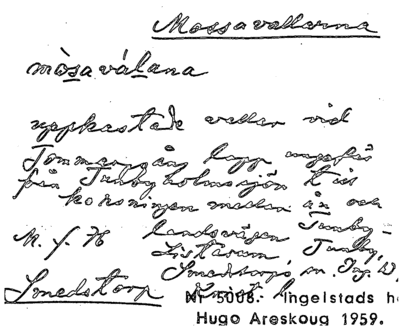 Mossavallarna
mòsaválana
uppkastade vallar vid
Tommarpsån's lopp ungefär
från Tunbyholmssjön till
korsningen mellan ån och
M. f. H landsvägen Tunby-
Listarum, Tunby,
Smedstorps sn. Ing. hd,
Smedstorp
Nr 5008. Ingelstads h
Hugo Areskoug 1959.